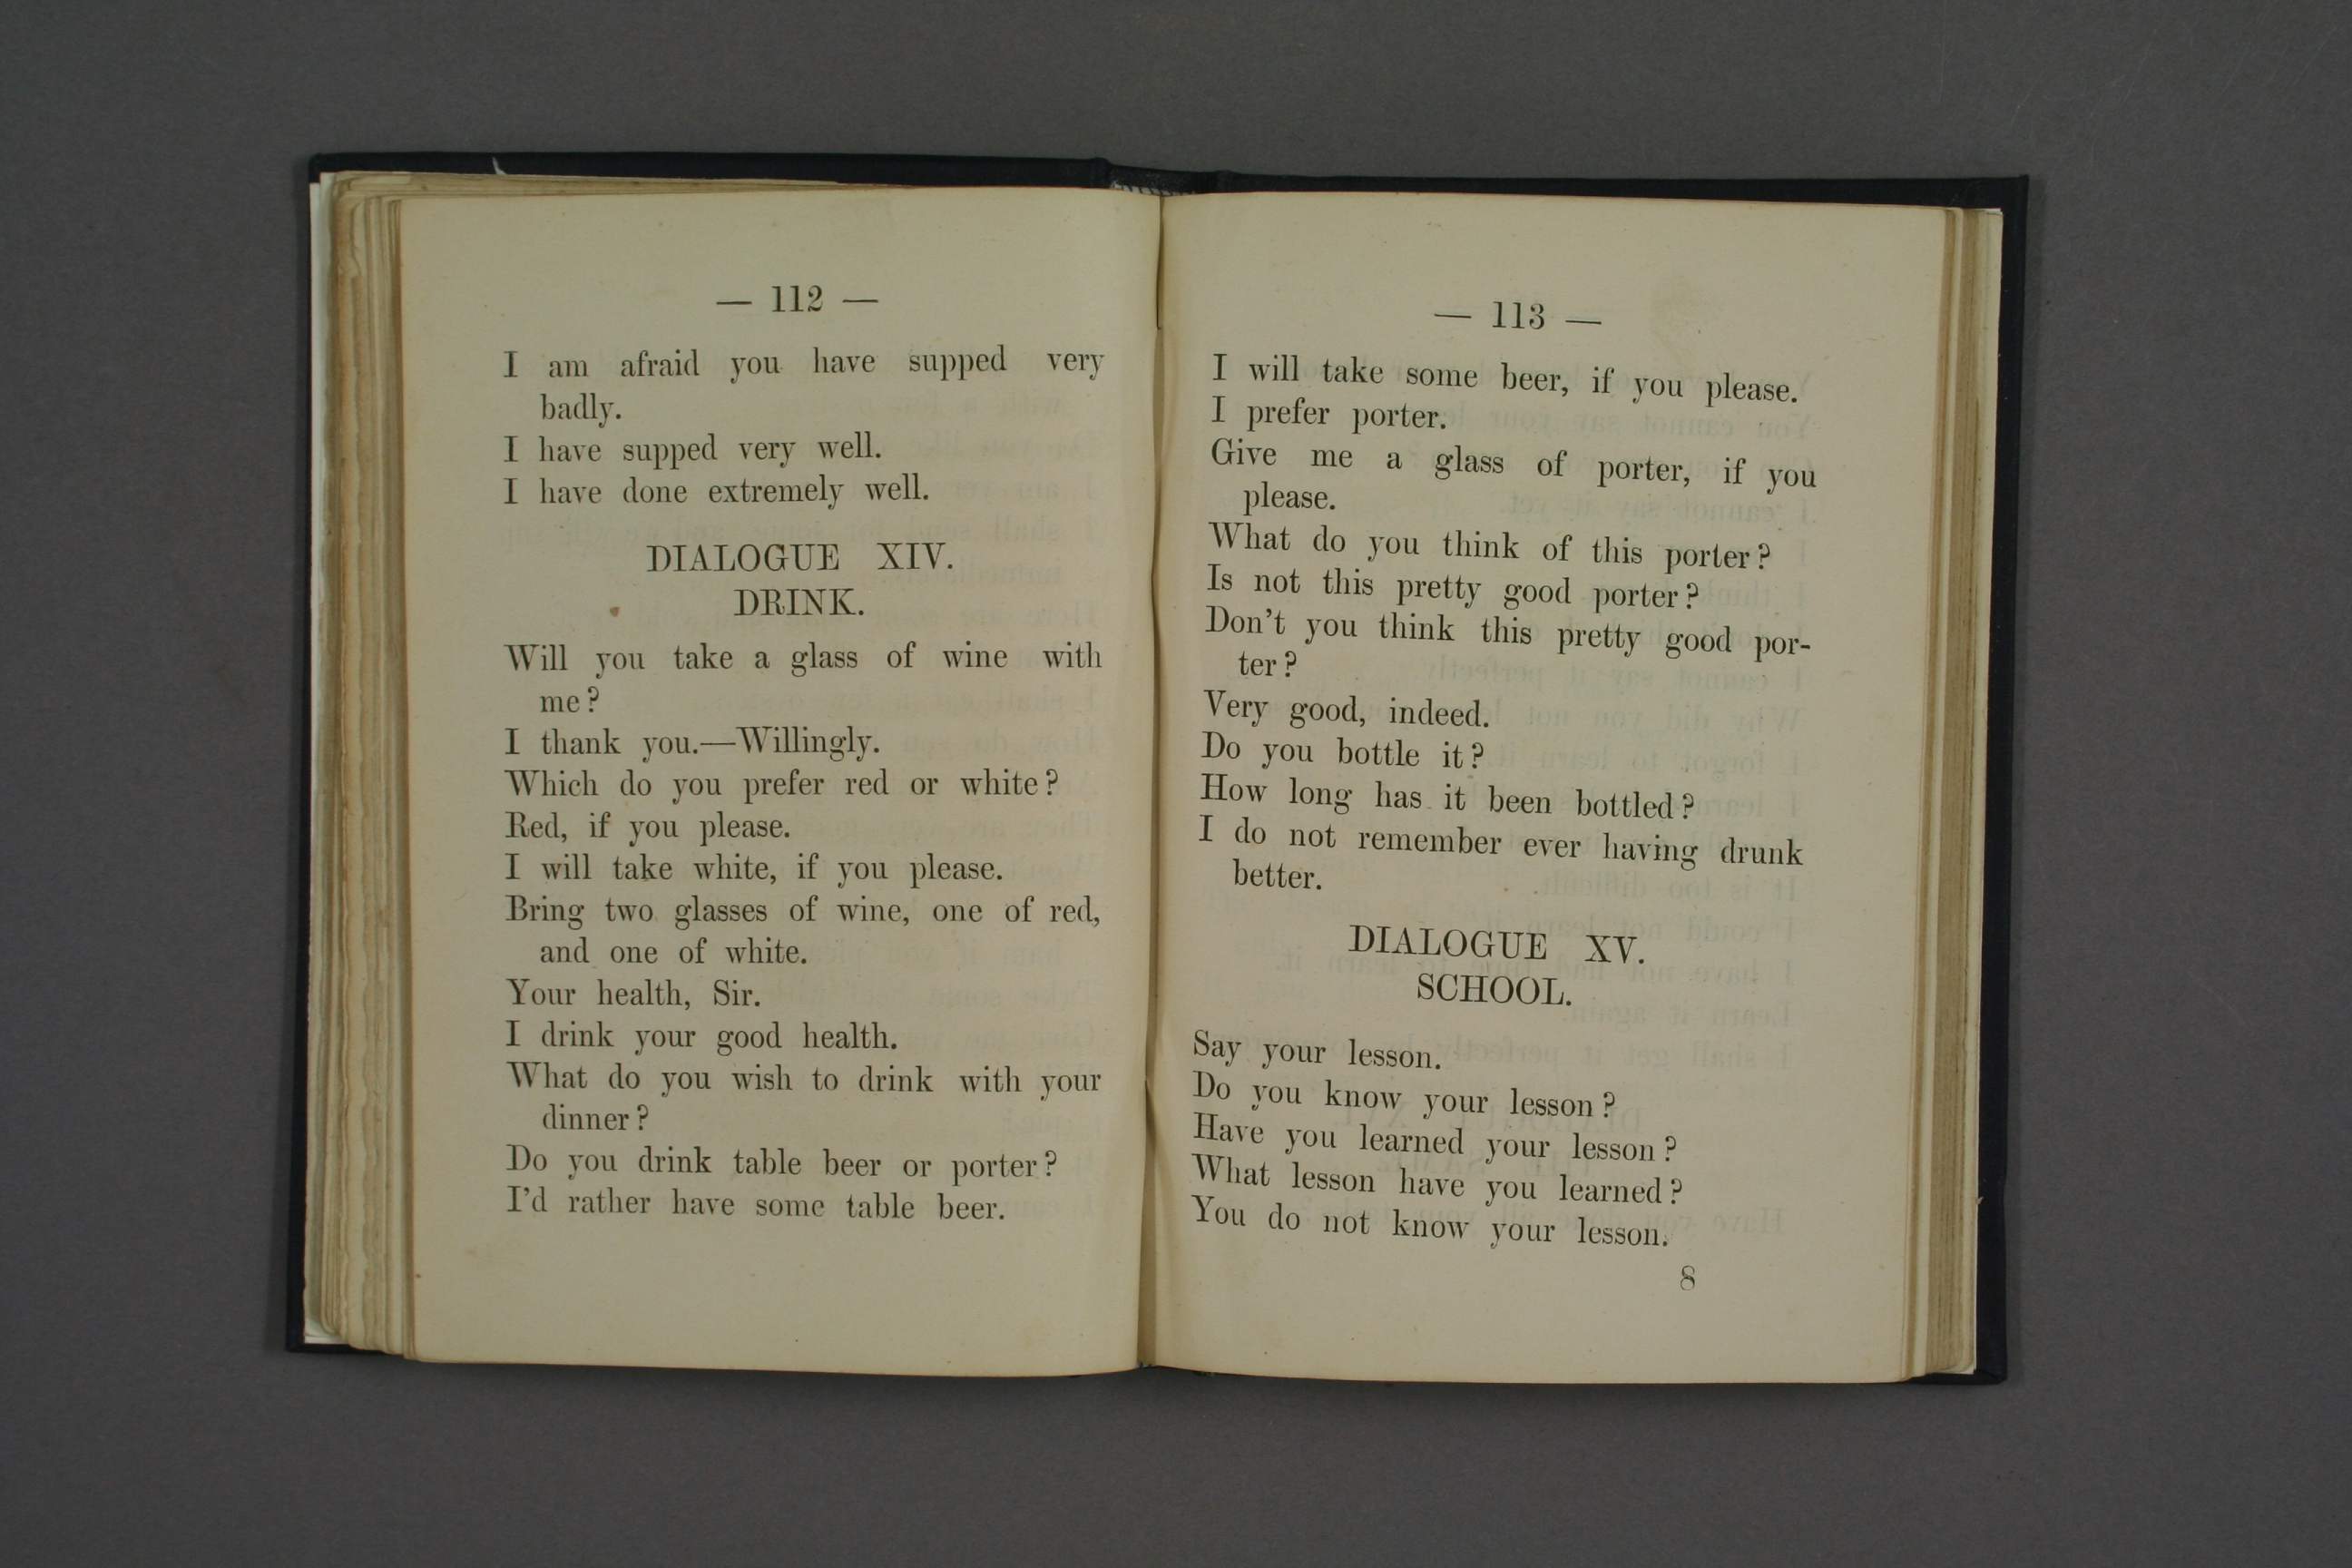 — 112 —
I am afraid you have supped very
badly.
I have supped very well.
I have done extremely well.
DIALOGUE XIV.
DRINK.
Will you take a glass of wine with
me?
I thank you.—Willingly.
Which do you prefer red or white?
Red, if you please.
I will take white, if you please.
Bring two glasses of wine, one of red,
and one of white.
Your health, Sir.
I drink your good health.
What do you wish to drink with your
dinner?
Do you drink table beer or porter?
I'd rather have some table beer.
— 113 —
I will take some beer, if you please.
I prefer porter.
Give me a glass of porter, if you
please.
What do you think of this porter?
Is not this pretty good porter?
Don't you think this pretty good por-
ter?
Very good, indeed.
Do you bottle it?
How long has it been bottled?
I do not remember ever having drunk
better.
DIALOGUE XV.
SCHOOL.
Say your lesson.
Do you know your lesson?
Have you learned your lesson?
What lesson have you learned?
You do not know your lesson.
8